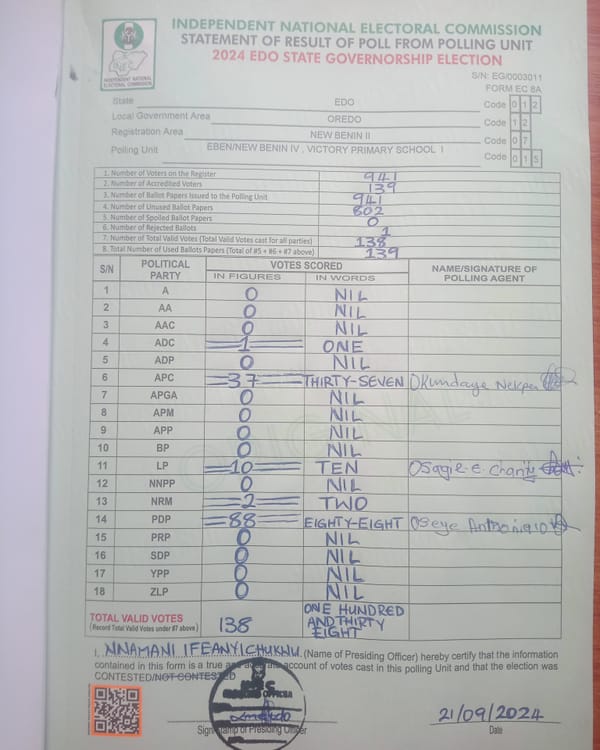 INDEPENDENT NATIONAL ELECTORAL COMMISSION
STATEMENT OF RESULT OF POLL FROM POLLING UNIT
2024 EDO STATE GOVERNORSHIP ELECTION
INEC
INDEPENDENT NATIONAL ELECTORAL COMMISSION
S/N: EG/0003011
FORM EC 8A
State EDO Code 0 1 2
Local Government Area OREDO Code 1 2
Registration Area NEW BENIN II Code 0 7
Polling Unit EBEN/NEW BENIN IV , VICTORY PRIMARY SCHOOL I Code 0 1 5
1. Number of Voters on the Register 941
2. Number of Accredited Voters 139
3. Number of Ballot Papers Issued to the Polling Unit 941
4. Number of Unused Ballot Papers 802
5. Number of Spoiled Ballot Papers 0
6. Number of Rejected Ballots 1
7. Number of Total Valid Votes (Total Valid Votes cast for all parties) 138
8. Total Number of Used Ballots Papers (Total of #5 + #6 + #7 above) 139
S/N POLITICAL PARTY VOTES SCORED NAME/SIGNATURE OF POLLING AGENT
IN FIGURES IN WORDS
1 A 0 NIL
2 AA 0 NIL
3 AAC 0 NIL
4 ADC 1 ONE
5 ADP 0 NIL
6 APC 37 THIRTY-SEVEN Okundaye Nekpen
7 APGA 0 NIL
8 APM 0 NIL
9 APP 0 NIL
10 BP 0 NIL
11 LP 10 TEN Osagie.E.Charity
12 NNPP 0 NIL
13 NRM 2 TWO
14 PDP 88 EIGHTY-EIGHT Oseye
15 PRP 0 NIL
16 SDP 0 NIL
17 YPP 0 NIL
18 ZLP 0 NIL
TOTAL VALID VOTES 138 ONE HUNDRED AND THIRTY EIGHT
(Record Total Valid Votes under #7 above)
ORIGINAL
I, NNAMANI IFEANYICHUKWU (Name of Presiding Officer) hereby certify that the information
contained in this form is a true and account of votes cast in this polling Unit and that the election was
CONTESTED/NOT CONTESTED
21/09/2024
Sign Stamp of Presiding Officer
Date